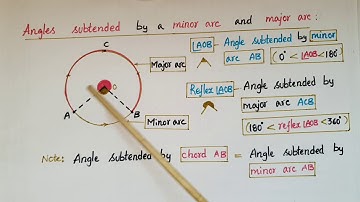 Angles subtended by a minor arc and major arc:
C
Major arc
O
A
B
Minor arc
∠AOB - Angle subtended by minor
arc AB (0° < ∠AOB < 180°)
Reflex ∠AOB - Angle subtended by
major arc ACB
(180° < reflex ∠AOB < 360°)
Note: Angle subtended by chord AB = Angle subtended by
minor arc AB